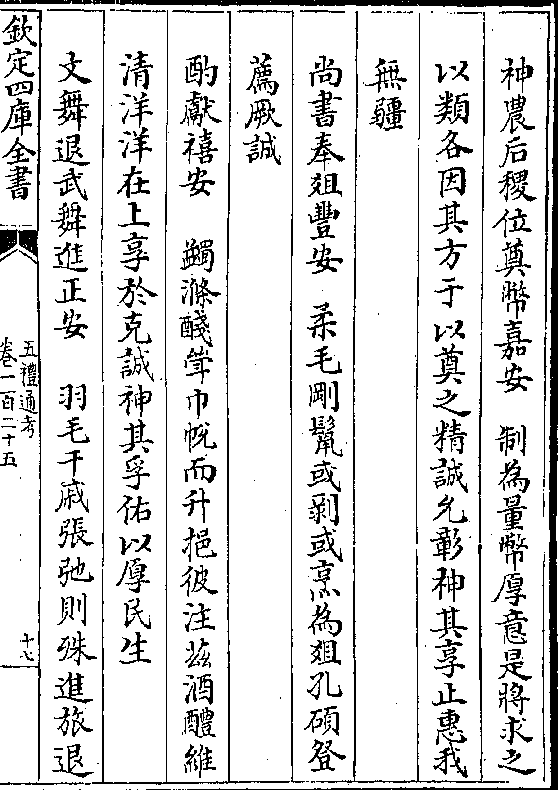 神農后稷位奠幣嘉安　制為量幣厚意是將求之
以類各因其方于以奠之精誠允彰神其享止惠我
無疆
尚書奉俎豐安　柔毛剛鬣或剝或烹為俎孔碩登
薦厥誠
酌獻禧安　蠲滌醆斝巾帨而升挹彼注茲酒醴維
清洋洋在上享於克誠神其孚佑以厚民生
文舞退武舞進正安　羽毛干戚張弛則殊進旅退
欽定四庫全書
五禮通考
卷一百二十五
十七